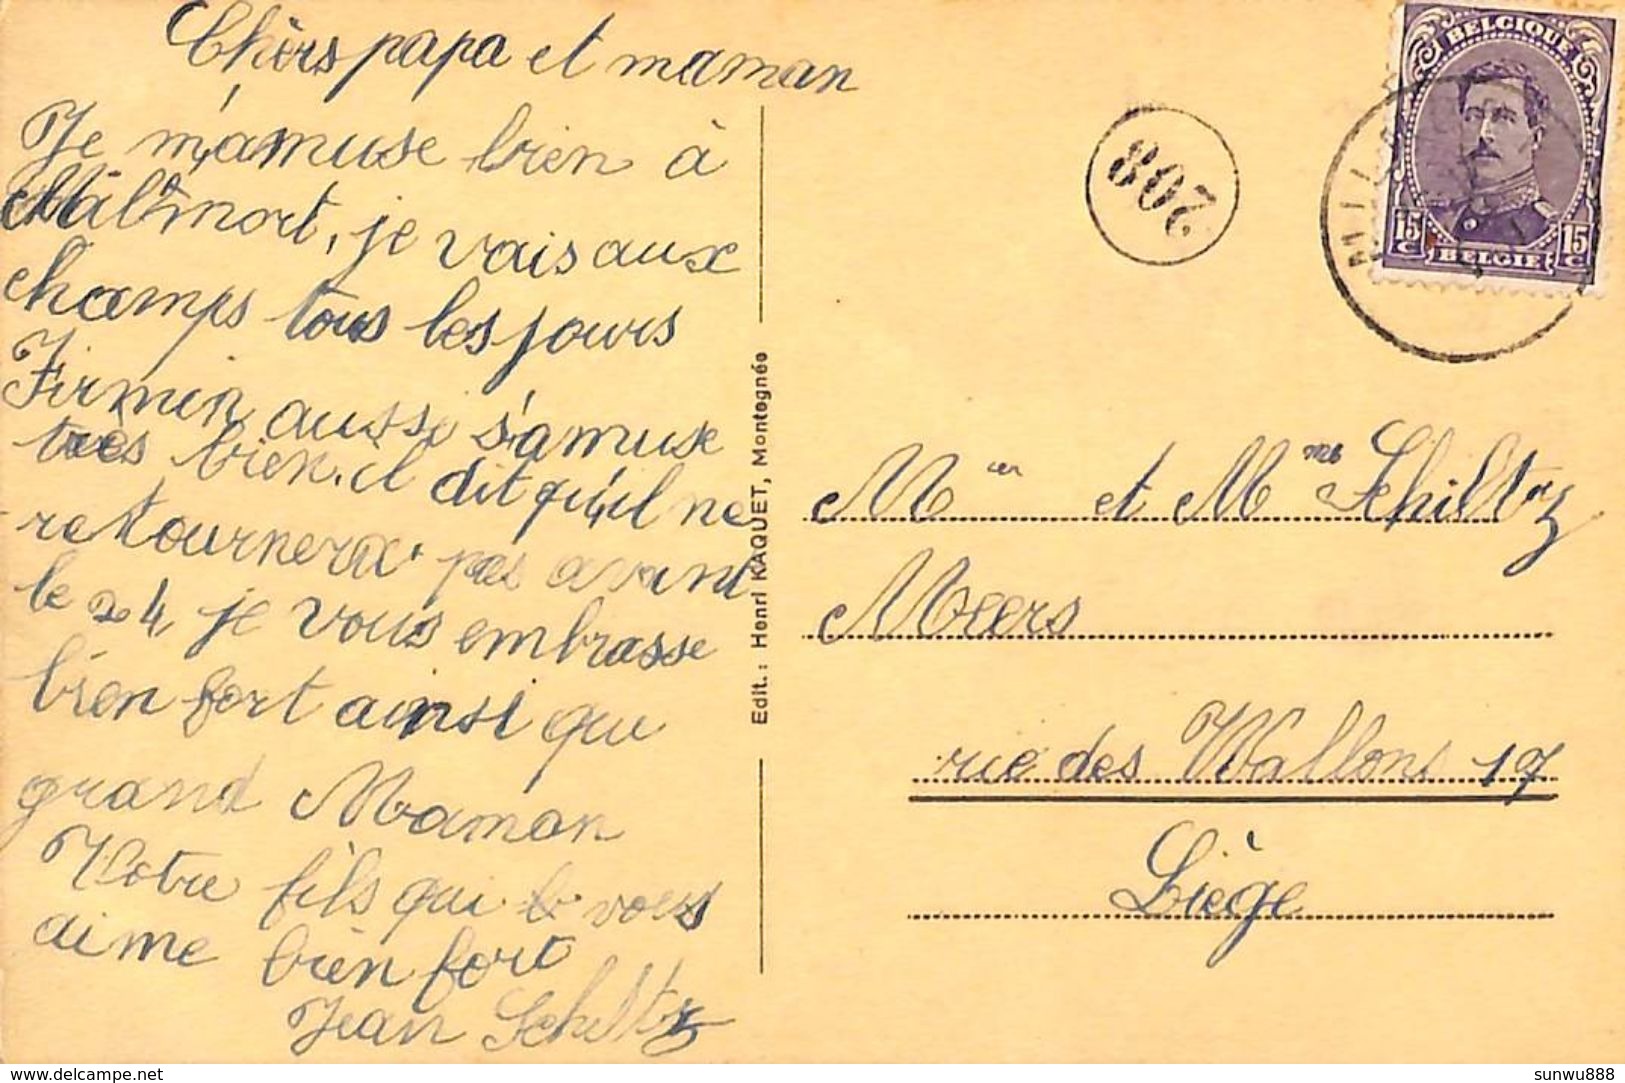 Chèrs papa et maman
Je m'amuse bien à
Milmort, je vais aux
champs tous les jours
Firmin aussi s'amuse
très bien, il dit qu'il ne
retournera pas avant
le 24, je vous embrasse
bien fort ainsi que
grand Maman
Votre fils qui vous
aime bien fort
Jean Schiltz
Edit.: Henri KAQUET, Montegnée
208
BELGIQUE
15 C
15 C
BELGIË
Mier et Mme Schiltz
Meers
rue des Wallons 17
Liège
delcampe.net
sunwu888